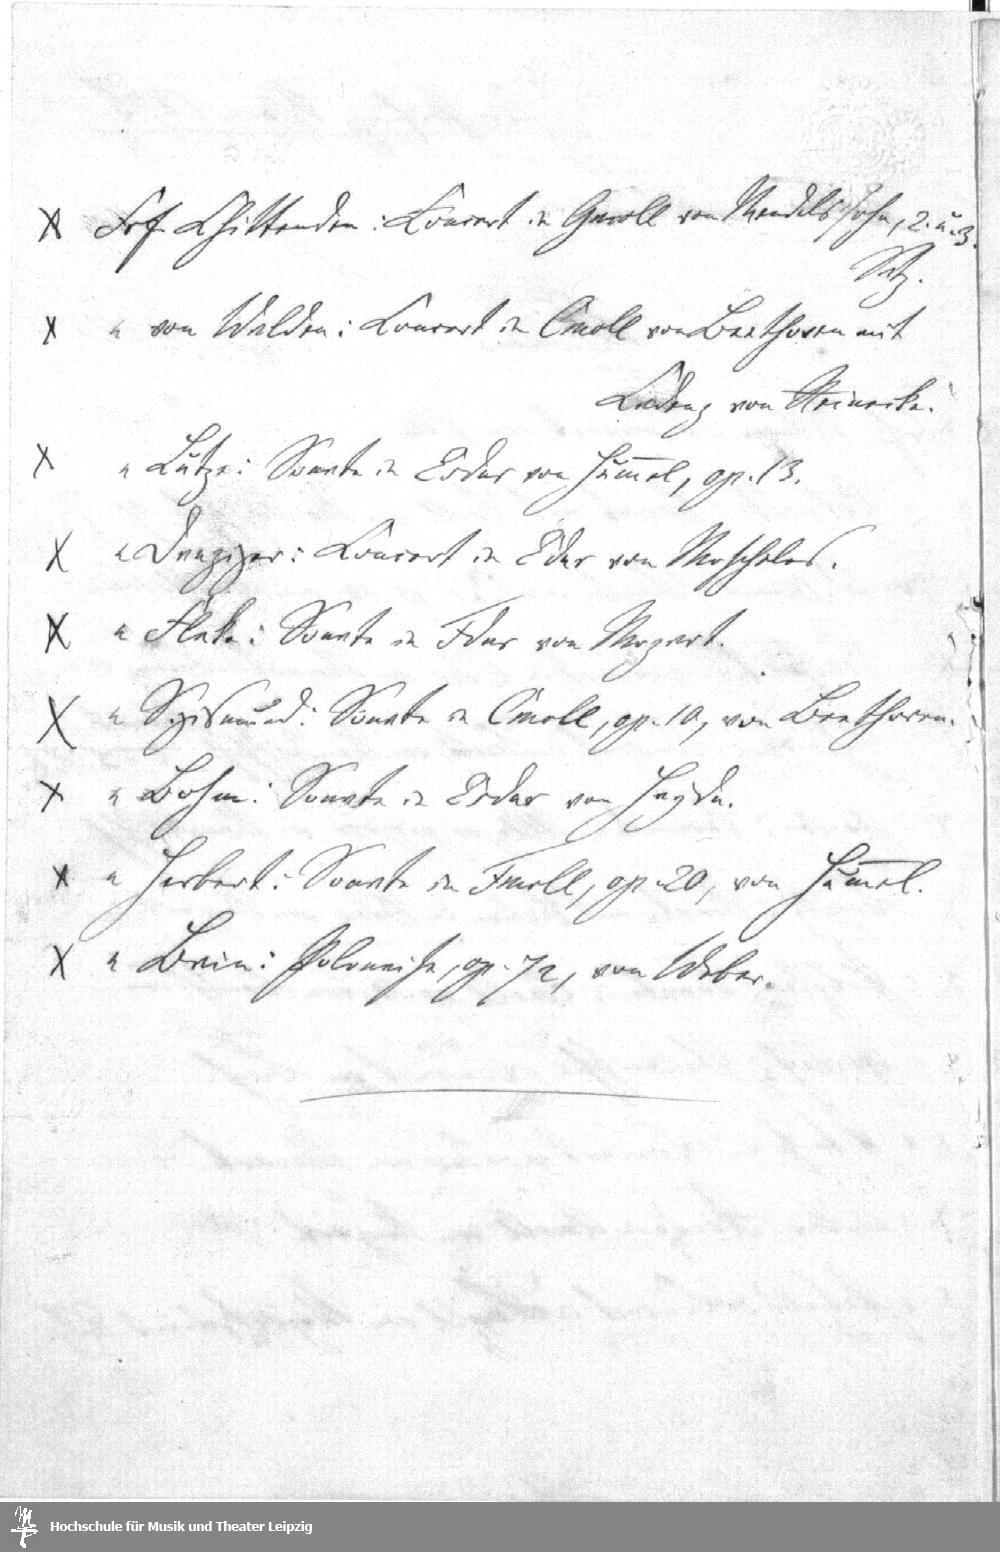 X Frl. Chittenden: Concert in Gmoll von Mendelssohn, 2. u. 3.
Satz.
X " von Walden: Concert in Cmoll von Beethoven mit
Cadenz von Reinecke.
X " Lutze: Sonate in Esdur von Hum̄el, op. 13.
X " Danziger: Concert in Edur von Moscheles.
X " Flak: Sonate in Fdur von Mozart.
X " Sigismund: Sonate in Cmoll, op. 10, von Beethoven.
X " Bohm: Sonate in Esdur von Haydn.
X " Herbert: Sonate in Fmoll, op. 20, von Hum̄el.
X " Brin: Polonaise, op. 72, von Weber.
Hochschule für Musik und Theater Leipzig